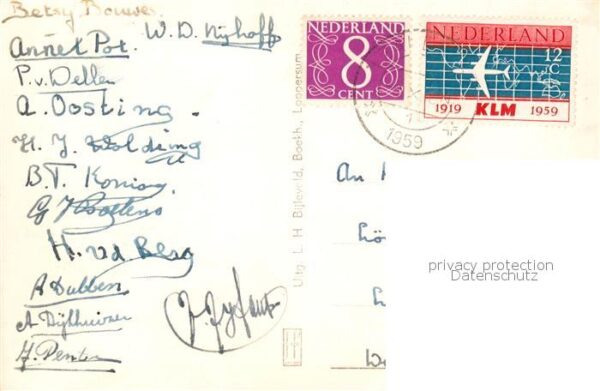 Betsy Bouwer
W. D. Nijhoff
Annet Pot.
P. v. Dellen
A. Oosting.
H. J. Wolding
B. T. Koning
G J
H. vd Berg
A Dubben
A Dijkhuizen
H. Penter
Uitg. L. H. Bijleveld, Boekh., Loppersum
NEDERLAND
8
CENT
NEDERLAND
12
C
1919 KLM 1959
1959
An
privacy protection
Datenschutz